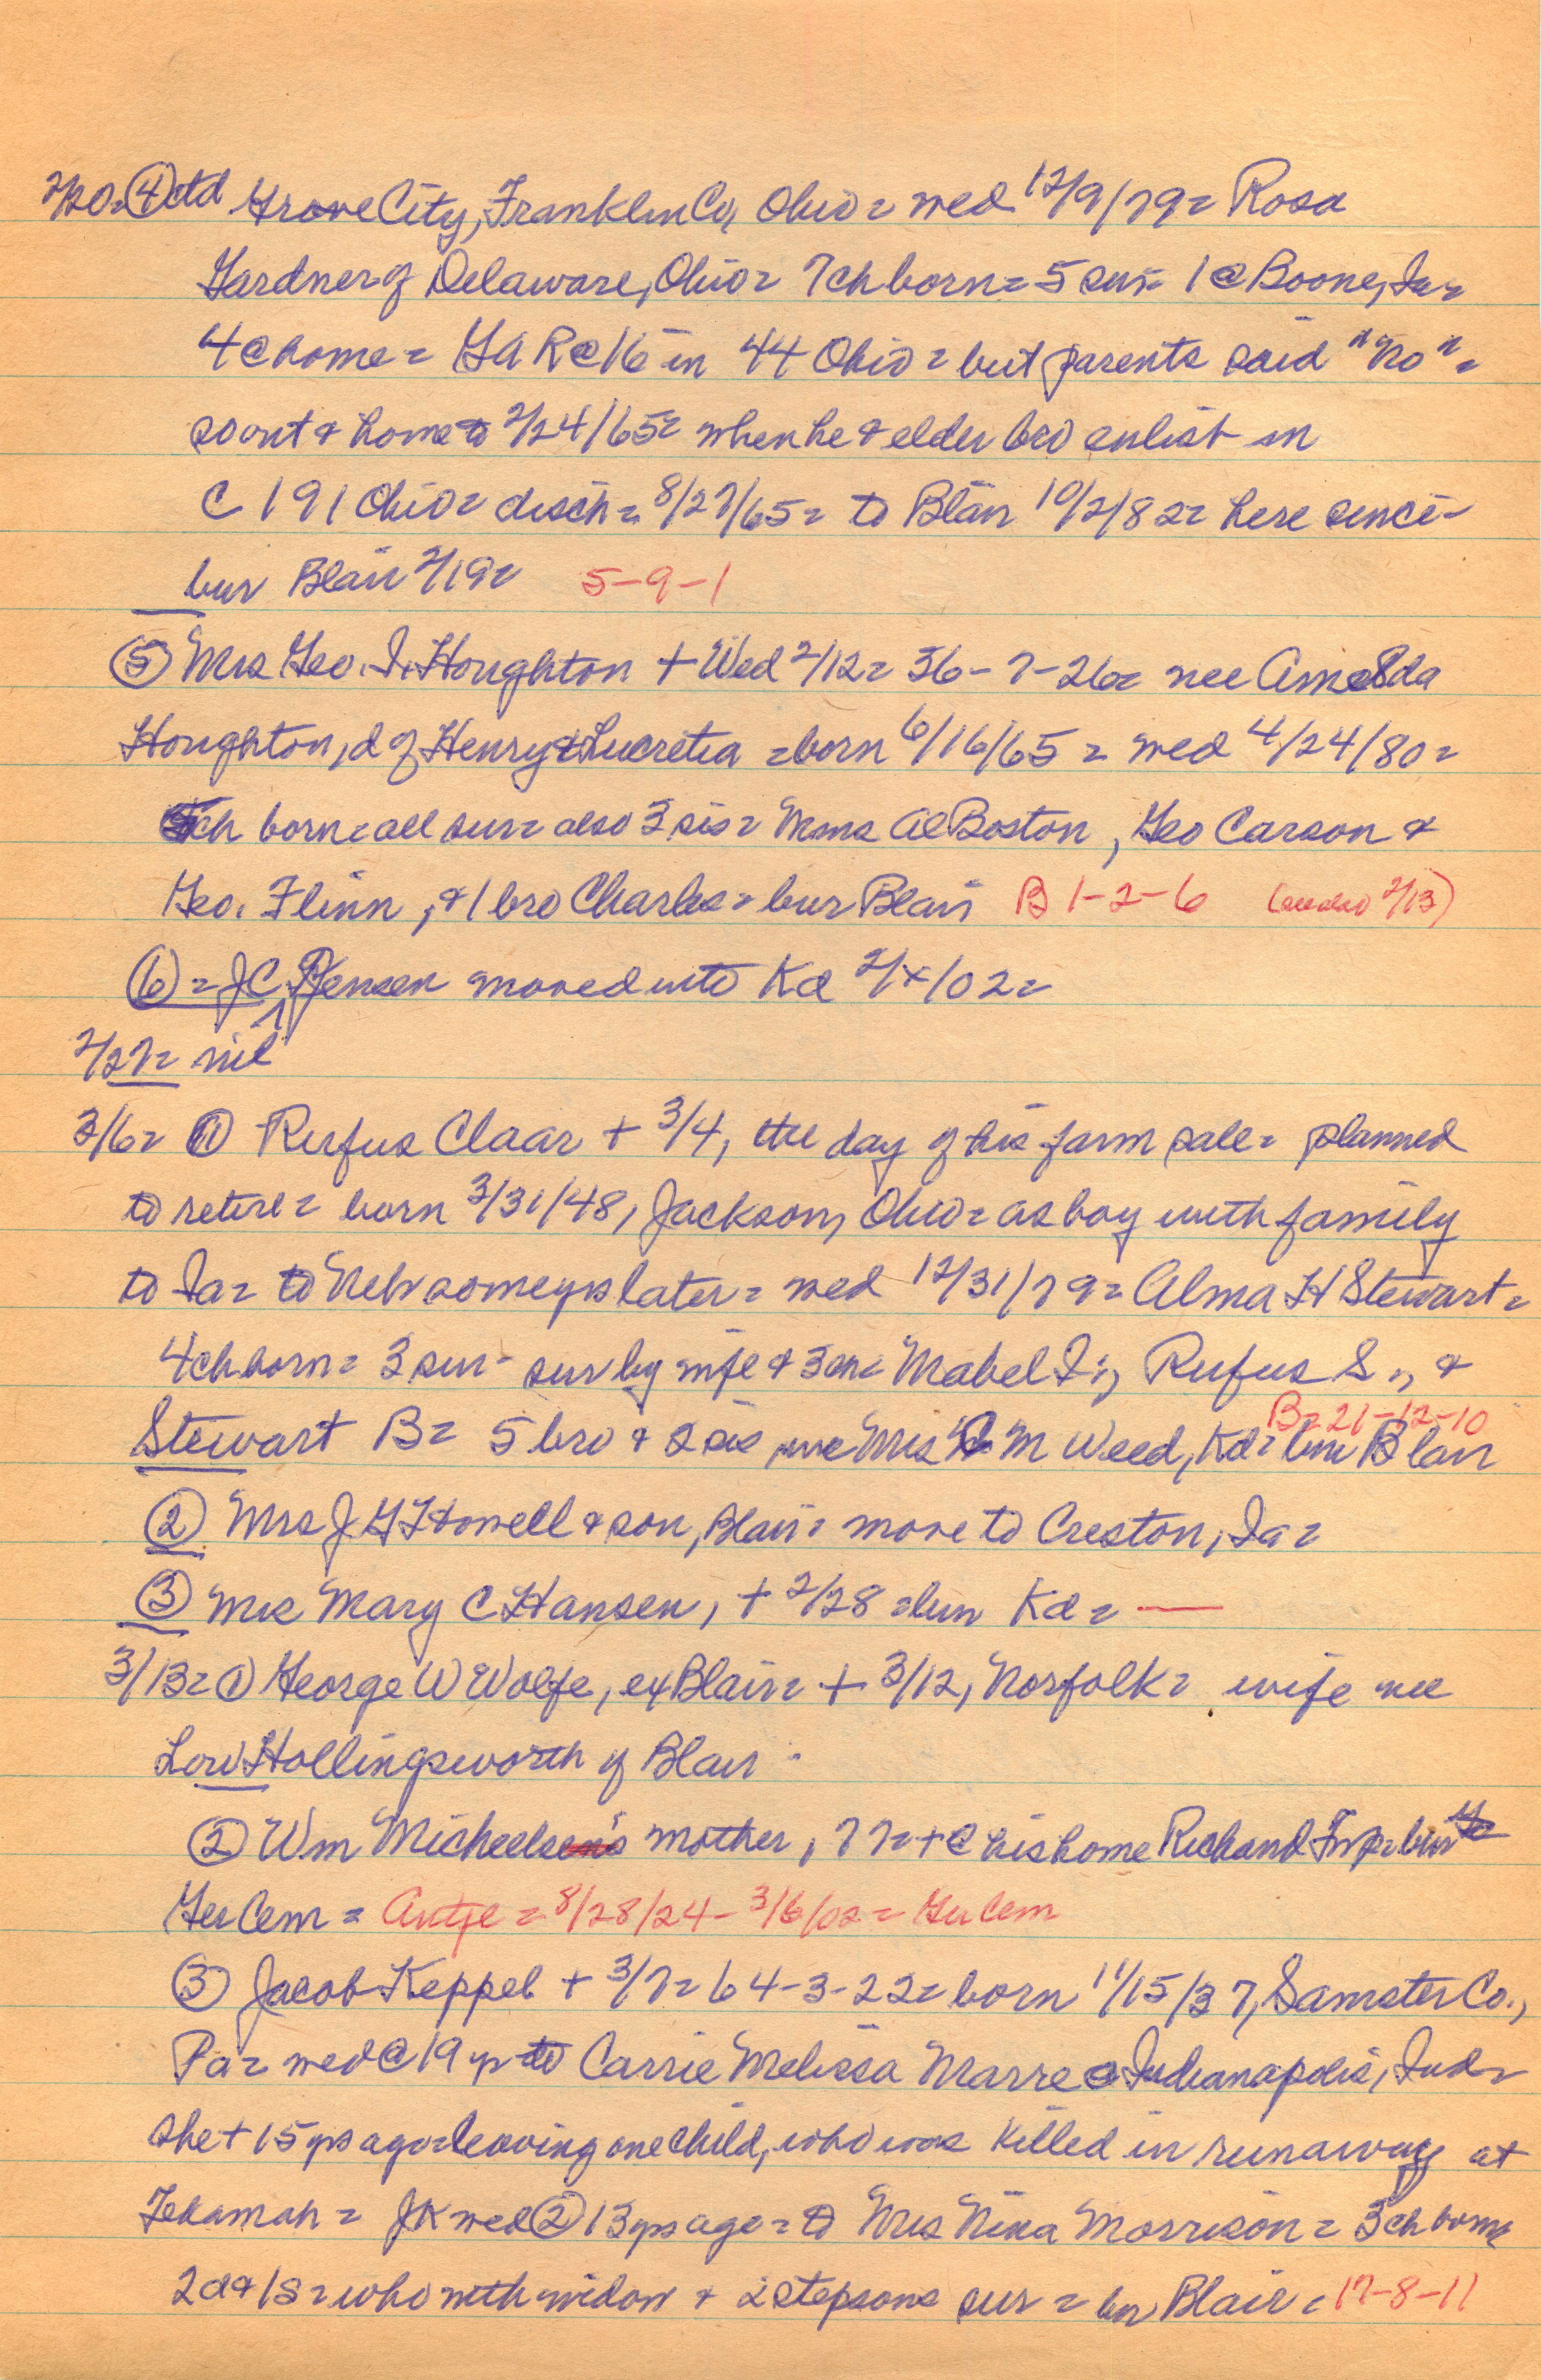 2/20= ④ctd Grove City, Franklin Co, Ohio = wed 12/9/79= Rosa
Gardner of Delaware, Ohio = 7 ch born = 5 sur = 1 @ Boone, Ia =
4 @ home = GAR @ 16 in 44 Ohio = but parents said "no" =
so ont & home to 2/24/65= when he & elder bro enlist in
C 191 Ohio = disch = 8/27/65 = to Blair 10/2/82= here since -
bur Blair 2/19= 5-9-1
⑤ Mrs Geo. I. Houghton + Wed 2/12= 36-7-26= nee Amelda
Houghton, d of Henry & Lucretia = born 6/16/65 = wed 4/24/80=
ch born = all sur = also 3 sis = Mms Al Boston, Geo Carson &
Geo. Flinn, & 1 bro Charles = bur Blair B 1-2-6 (see also 2/13)
⑥ = J C P Jensen moved into Kd 2/x/02=
2/27= nil
3/6= ① Rufus Claar + 3/4, the day of his farm sale = planned
to retire = born 3/31/48, Jackson, Ohio = as boy with family
to Ia = to Neb some yrs later = wed 12/31/79= Alma H Stewart =
4 ch born = 3 sur - sur by wife & 3 ch = Mabel I., Rufus S., &
Stewart B = 5 bro & 2 sis, inc Mrs M Weed, Kd = bur Blair B= 21-12-10
② Mrs J G Howell & son, Blair = move to Creston, Ia =
③ Mrs Mary C Hansen, + 2/28 = bur Kd = —
3/13= ① George W Wolfe, ex Blair = + 3/12, Norfolk = wife nee
Low Hollingsworth of Blair
② Wm Micheelsen's mother, 77= + @ his home Richland Twp = bur
Ger Cem = Antje = 8/28/24 - 3/6/02 = Ger Cem
③ Jacob Keppel + 3/7= 64-3-22= born 11/15/37, Samster Co.,
Pa = wed @ 19 yrs to Carrie Melissa Marre @ Indianapolis, Ind =
she + 15 yrs ago = leaving one child, who was killed in runaway at
Tekamah = JK wed ② 13 yrs ago = to Mrs Nina Morrison = 3 ch born
2 d & 1 s = who with widow & 2 stepsons sur = bur Blair = 17-8-11